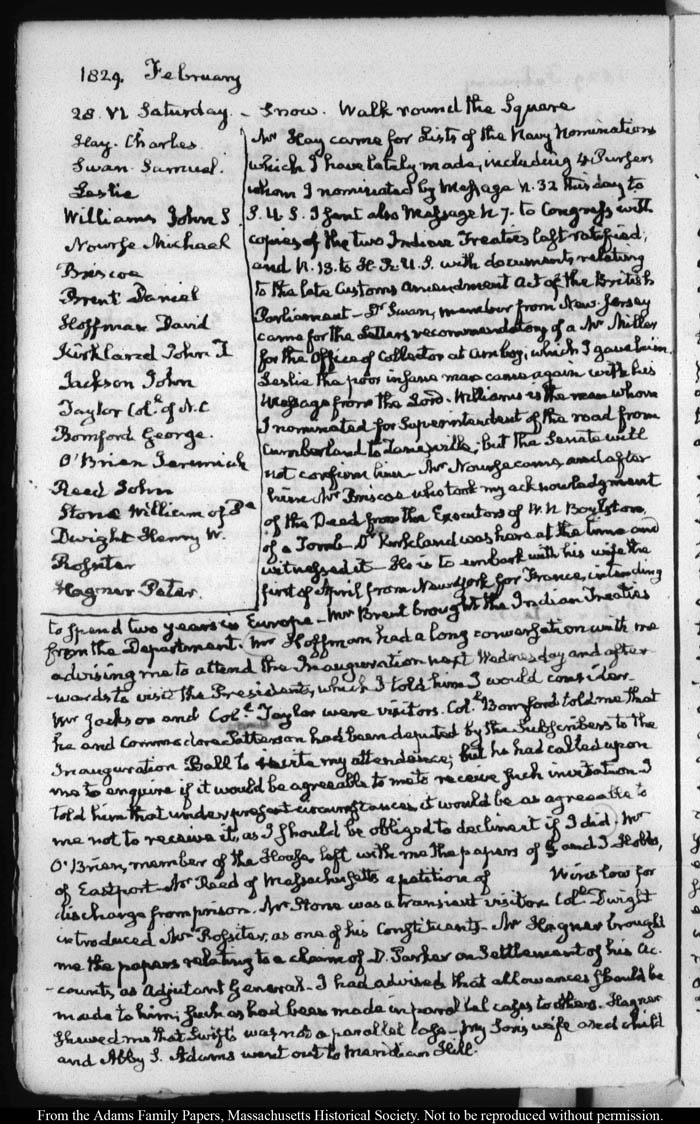 1829. February
28. VI. Saturday. – Snow. Walk round the Square
Hay. Charles.
Swan. Samuel.
Leslie
Williams John S.
Nourse Michael
Briscoe
Brent Daniel
Hoffman David
Kirkland John T
Jackson John
Taylor Col.l of N.C
Bomford George.
O'Brien Jeremiah
Reed John
Stone William of
Dwight Henry W.
Rossiter
Hagner Peter.
Mr Hay came for Lists of the Navy Nominations
which I have lately made, including 4 Pursers
whom I nominated by Message N. 32 this day to
S. U. S. I sent also Message N 7. to Congress with
copies of the two Indian Treaties last ratified;
and N. 13. to H. R. U. S. with documents relating
to the late Customs amendment Act of the British
Parliament – Dr Swan, member from New-Jersey
came for the Letters recommendatory of a Mr Miller
for the Office of Collector at Amboy, which I gave him
Leslie the poor insane man came again with his
Message from the Lord. Williams is the man whom
I nominated for Superintendent of the road from
Cumberland to Zanesville; but the Senate will
not confirm him – Mr Nourse came and after
him Mr Briscoe who took my acknowledgment
of the Deed from the Executors of W. N Boylston,
of a Tomb – Dr Kirkland was here at the time and
witnessed it – He is to embark with his wife the
first of April from New York for France, intending
to spend two years in Europe – Mr Brent brought the Indian Treaties
from the Department. Mr Hoffman had a long conversation with me
advising me to attend the Inauguration next Wednesday and after-
-wards to visit the President, which I told him I would consider.
Mr Jackson and Col.l Taylor were visitors. Col.l Bomford told me that
he and Commodore Patterson had been deputed by the Subscribers to the
Inauguration Ball to invite my attendance; but he had called upon
me to enquire if it would be agreeable to me to receive such invitation I
told him that under present circumstances it would be as agreeable to
me not to receive it, as I should be obliged to decline it if I did. Mr
O'Brien, member of the House left with me the papers of S and I Hobbs,
of Eastport – Mr Reed of Massachusetts a petition of Winslow for
discharge from prison. Mr Stone was a transient visitor. Col.l Dwight
introduced Mr Rossiter, as one of his Constituents – Mr Hagner brought
me the papers relating to a claim of D. Parker on Settlement of his Ac-
-counts, as Adjutant General. I had advised that allowances should be
made to him, such as had been made in parallel cases to others. Hagner
shewed me that Swift's was not a parallel case – My Son's wife and child
and Abby S. Adams went out to Meridian Hill.
From the Adams Family Papers, Massachusetts Historical Society. Not to be reproduced without permission.